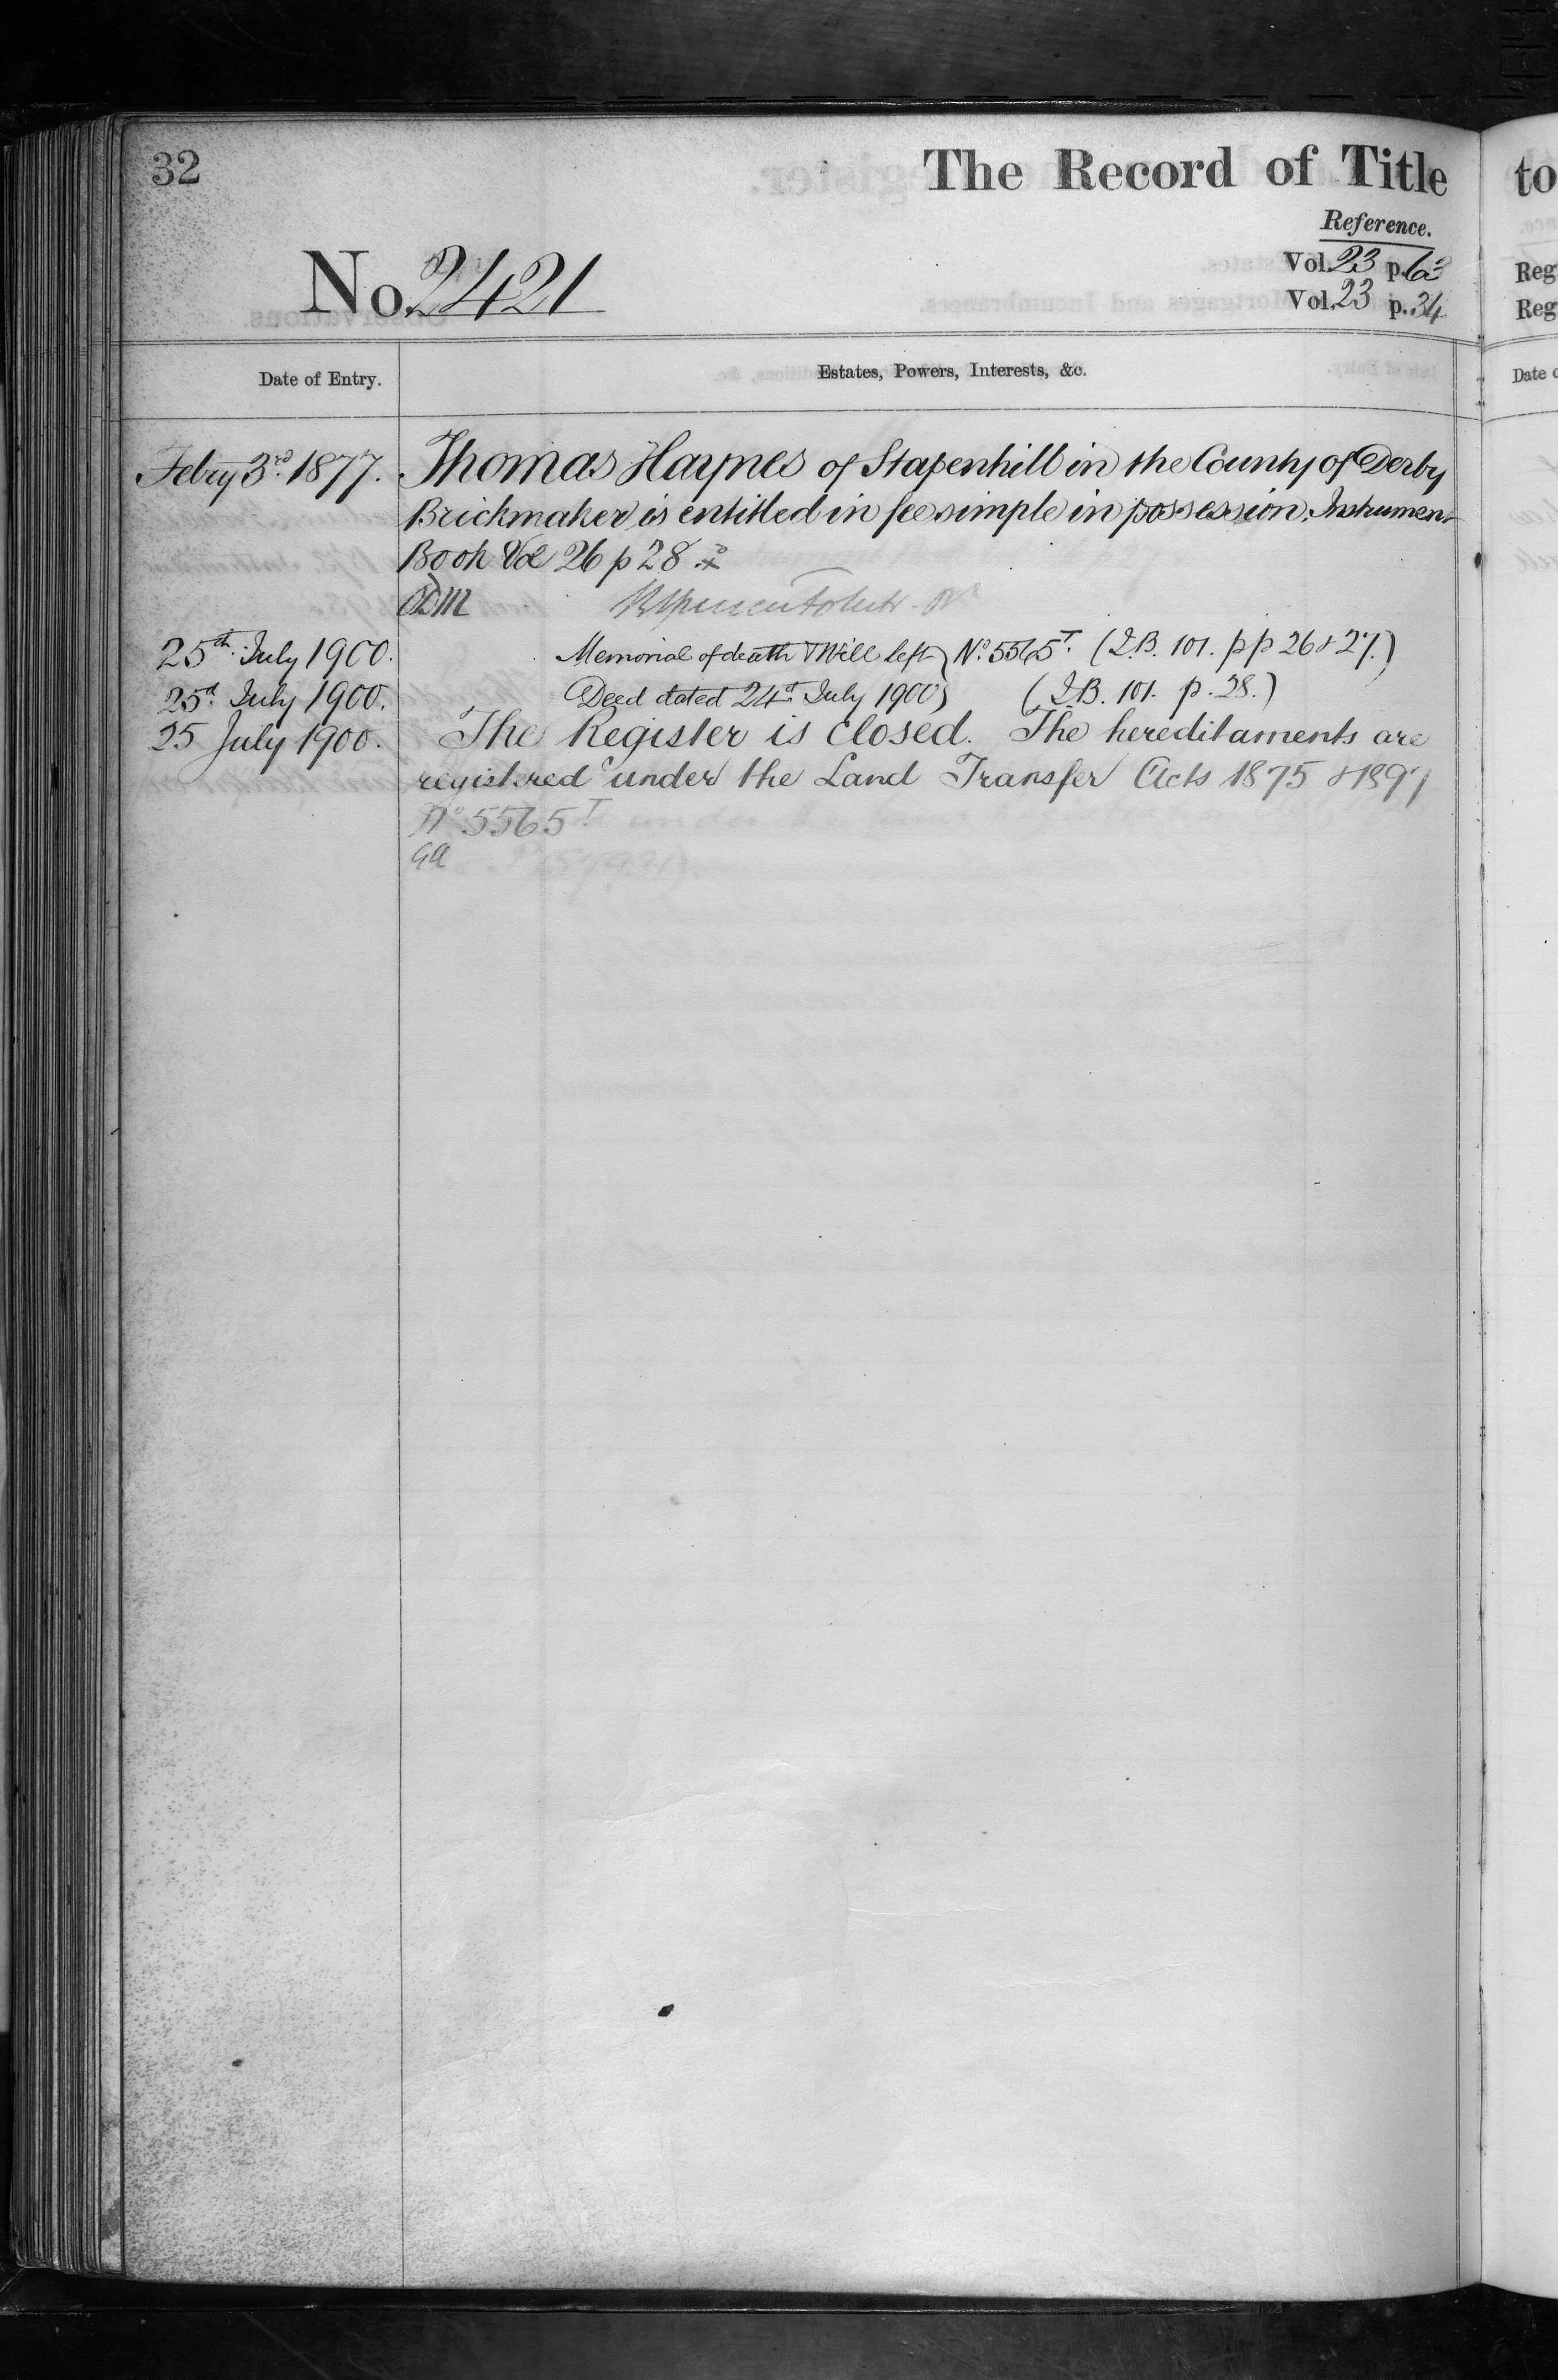 32
The Record of Title
Reference.
Vol. 23 p. 63
No. 2421
Vol. 23 p. 34
Date of Entry.
Estates, Powers, Interests, &c.
Febry 3rd 1877. Thomas Haynes of Stapenhill in the County of Derby
Brickmaker is entitled in fee simple in possession. Instrument
Book Vol 26 p 28
25th July 1900. Memorial of death & Will left } No. 5565T (I.B. 101. pp 26 & 27.)
25th July 1900. Deed dated 24th July 1900 } (I.B. 101. p. 28.)
25 July 1900. The Register is closed. The hereditaments are
registered under the Land Transfer Acts 1875 & 1897
No 5565T
GA
to
Reg
Reg
Date o